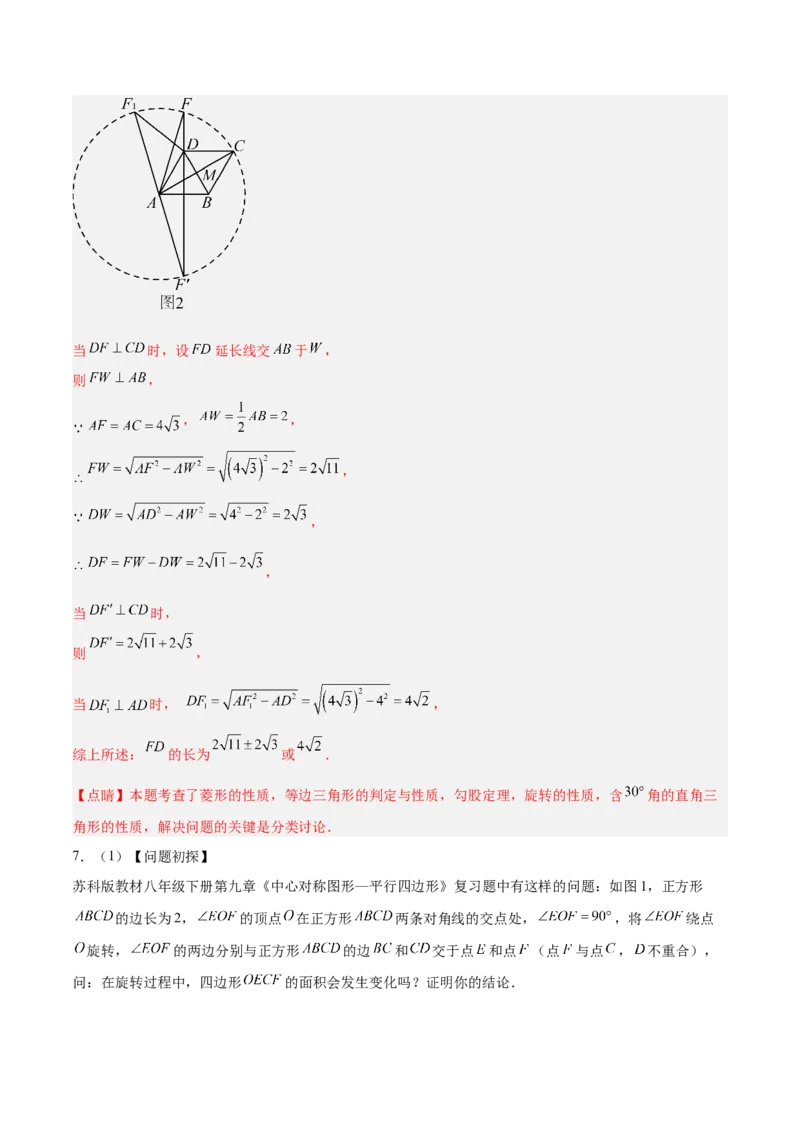 F₁ F
D C
M
A B
F′
图2
当DF⊥CD时，设FD 延长线交AB于W，
则FW⊥AB，
∵ AF=AC=4√3，AW=1/2 AB=2，
∴ FW=√(AF²−AW²)=√((4√3)²−2²)=2√11，
∵ DW=√(AD²−AW²)=√(4²−2²)=2√3，
∴ DF=FW−DW=2√11−2√3，
当DF′⊥CD时，
则DF′=2√11+2√3，
当DF₁⊥AD时，DF₁=√(AF₁²−AD²)=√((4√3)²−4²)=4√2，
综上所述：FD 的长为2√11±2√3或4√2．
【点睛】本题考查了菱形的性质，等边三角形的判定与性质，勾股定理，旋转的性质，含30°角的直角三
角形的性质，解决问题的关键是分类讨论．
7．（1）【问题初探】
苏科版教材八年级下册第九章《中心对称图形—平行四边形》复习题中有这样的问题：如图1，正方形
ABCD的边长为2，∠EOF的顶点O在正方形ABCD两条对角线的交点处，∠EOF=90°，将∠EOF绕点
O旋转，∠EOF的两边分别与正方形ABCD的边BC和CD交于点E和点F（点F与点C，D不重合），
问：在旋转过程中，四边形OECF的面积会发生变化吗？证明你的结论．